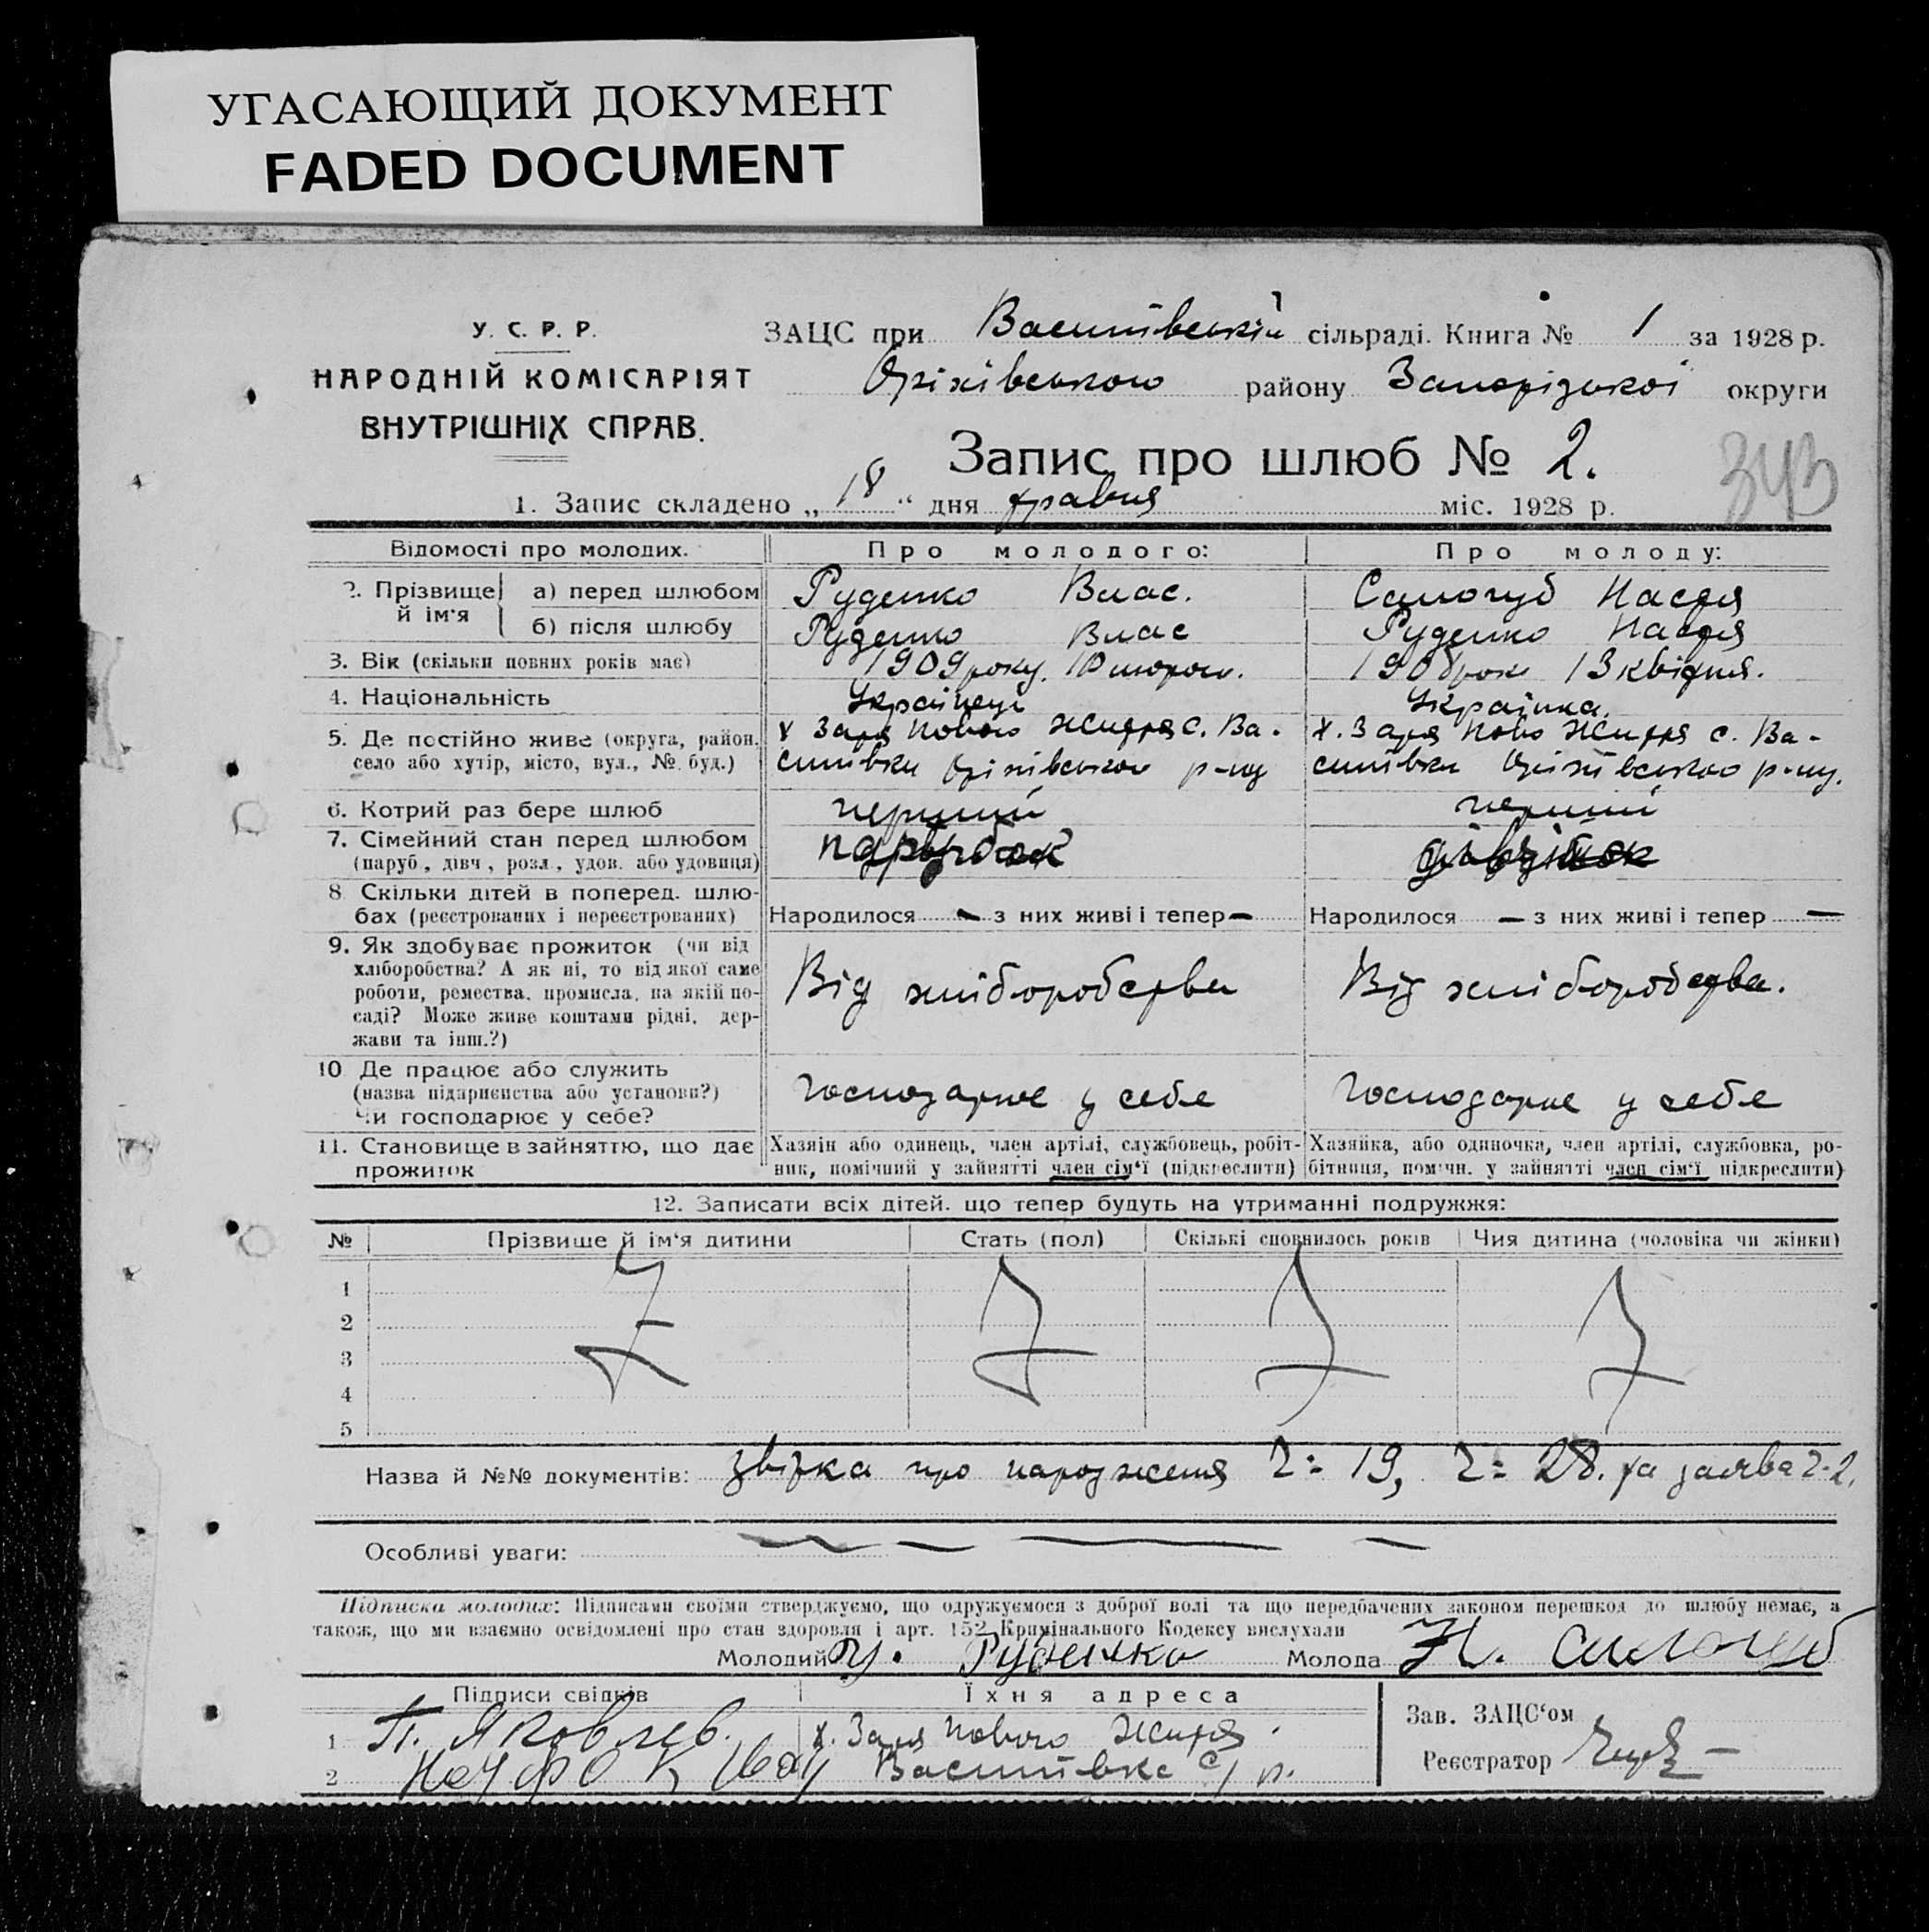 УГАСАЮЩИЙ ДОКУМЕНТ
FADED DOCUMENT
У. С. Р. Р.
НАРОДНІЙ КОМІСАРІЯТ
ВНУТРІШНІХ СПРАВ.
ЗАЦС при Василівській сільраді. Книга № 1 за 1928 р.
Оріхівського району Запорізької округи
Запис про шлюб № 2.
343
1. Запис складено „ 18 “ дня травня міс. 1928 р.
Відомості про молодих. Про молодого: Про молоду:
2. Прізвище й ім'я а) перед шлюбом Руденко Влас. Самогуб Настя
б) після шлюбу Руденко Влас Руденко Настя
3. Вік (скільки повних років має) 1909 року, 10 лютого. 13 квітня.
4. Національність Українець Українка.
5. Де постійно живе (округа, район, село або хутір, місто, вул., № буд.) х Заря Нового Життя с. Ва- х. Заря Ново Життя с. Ва-
силівки Оріхівського р-ну силівки Оріхівського р-ну.
6. Котрий раз бере шлюб перший перший
7. Сімейний стан перед шлюбом парубок
(паруб., дівч., розл., удов. або удовиця)
8 Скільки дітей в поперед. шлю-
бах (реєстрованих і нереєстрованих) Народилося — з них живі і тепер — Народилося — з них живі і тепер —
9. Як здобуває прожиток (чи від
хліборобства? А як ні, то від якої саме
роботи, ремества, промисла, на якій по-
саді? Може живе коштами рідні, дер-
жави та інш.?)
Від хліборобства Від хліборобства.
10 Де працює або служить
(назва підприєнства або установи?)
Чи господарює у себе?
Господарює у себе Господарює у себе
11. Становище в зайняттю, що дає
прожиток
Хазяін або одинець, член артілі, службовець, робіт-
ник, помічний у зайнятті член сім'ї (підкреслити)
Хазяйка, або одиночка, член артілі, службовка, ро-
бітниця, помічн. у зайнятті член сім'ї підкреслити)
12. Записати всіх дітей, що тепер будуть на утриманні подружжя:
№ Прізвище й ім'я дитини Стать (пол) Скількі сповнилось років Чия дитина (чоловіка чи жінки)
1
2
3
4
5
Назва й №№ документів: звізка про народження Ч= 19, Ч= 28. та заява Ч-2.
Особливі уваги:
Підписка молодих: Підписами своїми стверджуємо, що одружуємося з доброї волі та що передбачених законом перешкод до шлюбу немає, а
також, що ми взаємно освідомлені про стан здоровля і арт. 152 Кримінального Кодексу вислухали
Молодий Руденко Молода Н. Самогуб
Підписи свідків Їхня адреса
1 П. Яковлев. х. Заря Нового Життя.
2 Василівка с/р.
Зав. ЗАЦС'ом
Реєстратор